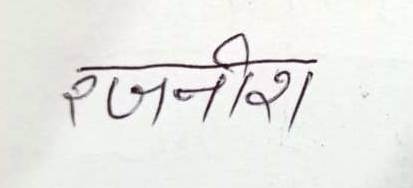 रजनीश